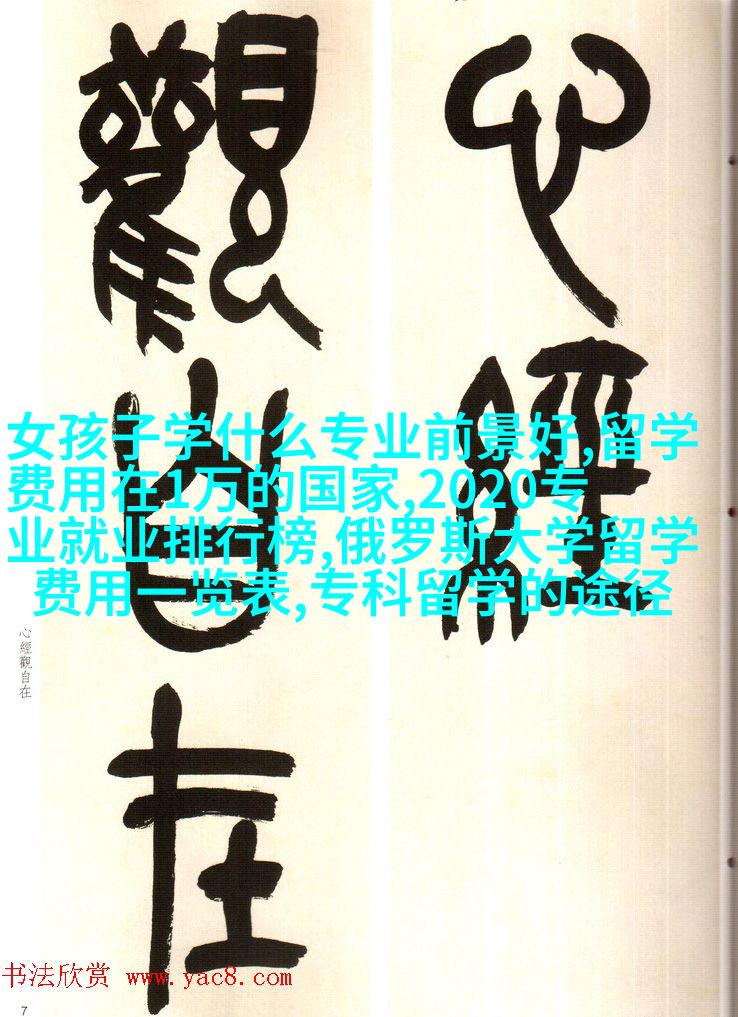 心經
觀自在
女孩子学什么专业前景好,留学
费用在1万的国家,2020专
业就业排行榜,俄罗斯大学留学
费用一览表,专科留学的途径
心經觀自在
书法欣赏 www.yac8.com
7